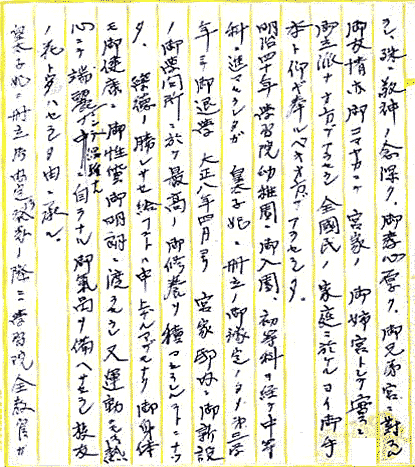 ラレ殊ニ敬神ノ念深ク、御孝心厚ク、御兄弟宮ニ對スル
御友情亦御コマヤカニテ 宮家ノ御姉宮トシテ實ニ
御立派ナオ方デアラセラレ全國民ノ家庭ニ於ケルヨイ御手
本ト仰ギ奉ルベキオ方デアラセラレタ。
明治四十年学習院幼稚園ニ御入園、初等科ヲ経テ中等
科ニ進マセラレタガ 皇太子妃ニ冊立ノ御決定ノタメ第三学
年ニテ御退学 大正八年四月ヨリ 宮家邸内ニ御新設
ノ御学問所ニ於テ最高ノ御修養ヲ積マセラルヽコトニナツ
タ。 榮徳ノ勝レサセ給フコトハ申上ゲルマデモナク御身体
モ御健康ニ御性質御明朗ニ渡ラセラレ又運動ニモ熱
心ニテ端麗ノ中ニ自ラナル御氣品ヲ備ヘサセラレ校友
ニシテ温雅ナ
ノ花ト拝ハセラレタ由ニ承ル。
皇太子妃ニ冊立御内定御発表ノ際ニ学習院全教官ガ